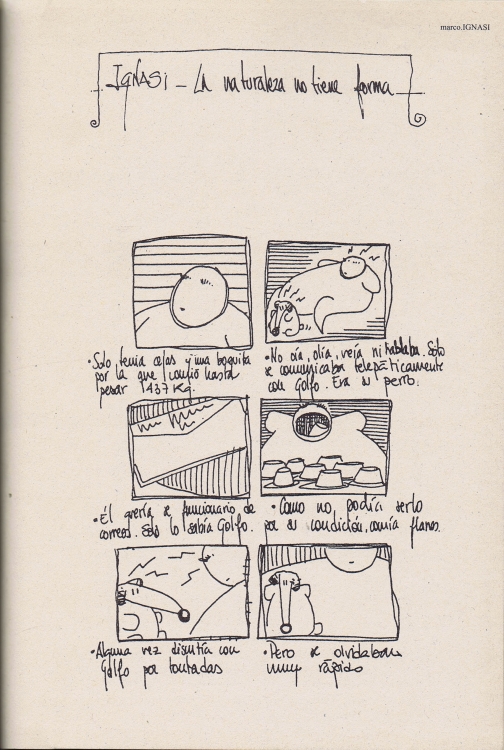 marco.IGNASI
IGNASI - La naturaleza no tiene forma
• Solo tenía cejas y una boquita
por la que comió hasta
pesar 1437 Kg.
• No oía, olía, veía ni hablaba. Solo
se comunicaba telepáticamente
con Golfo. Era su perro.
• Él quería se funcionario de
correos. Solo lo sabía Golfo.
• Como no podía serlo
por su condición, comía flanes.
• Alguna vez discutía con
Golfo por tontadas
• Pero se olvidaban
muy rápido